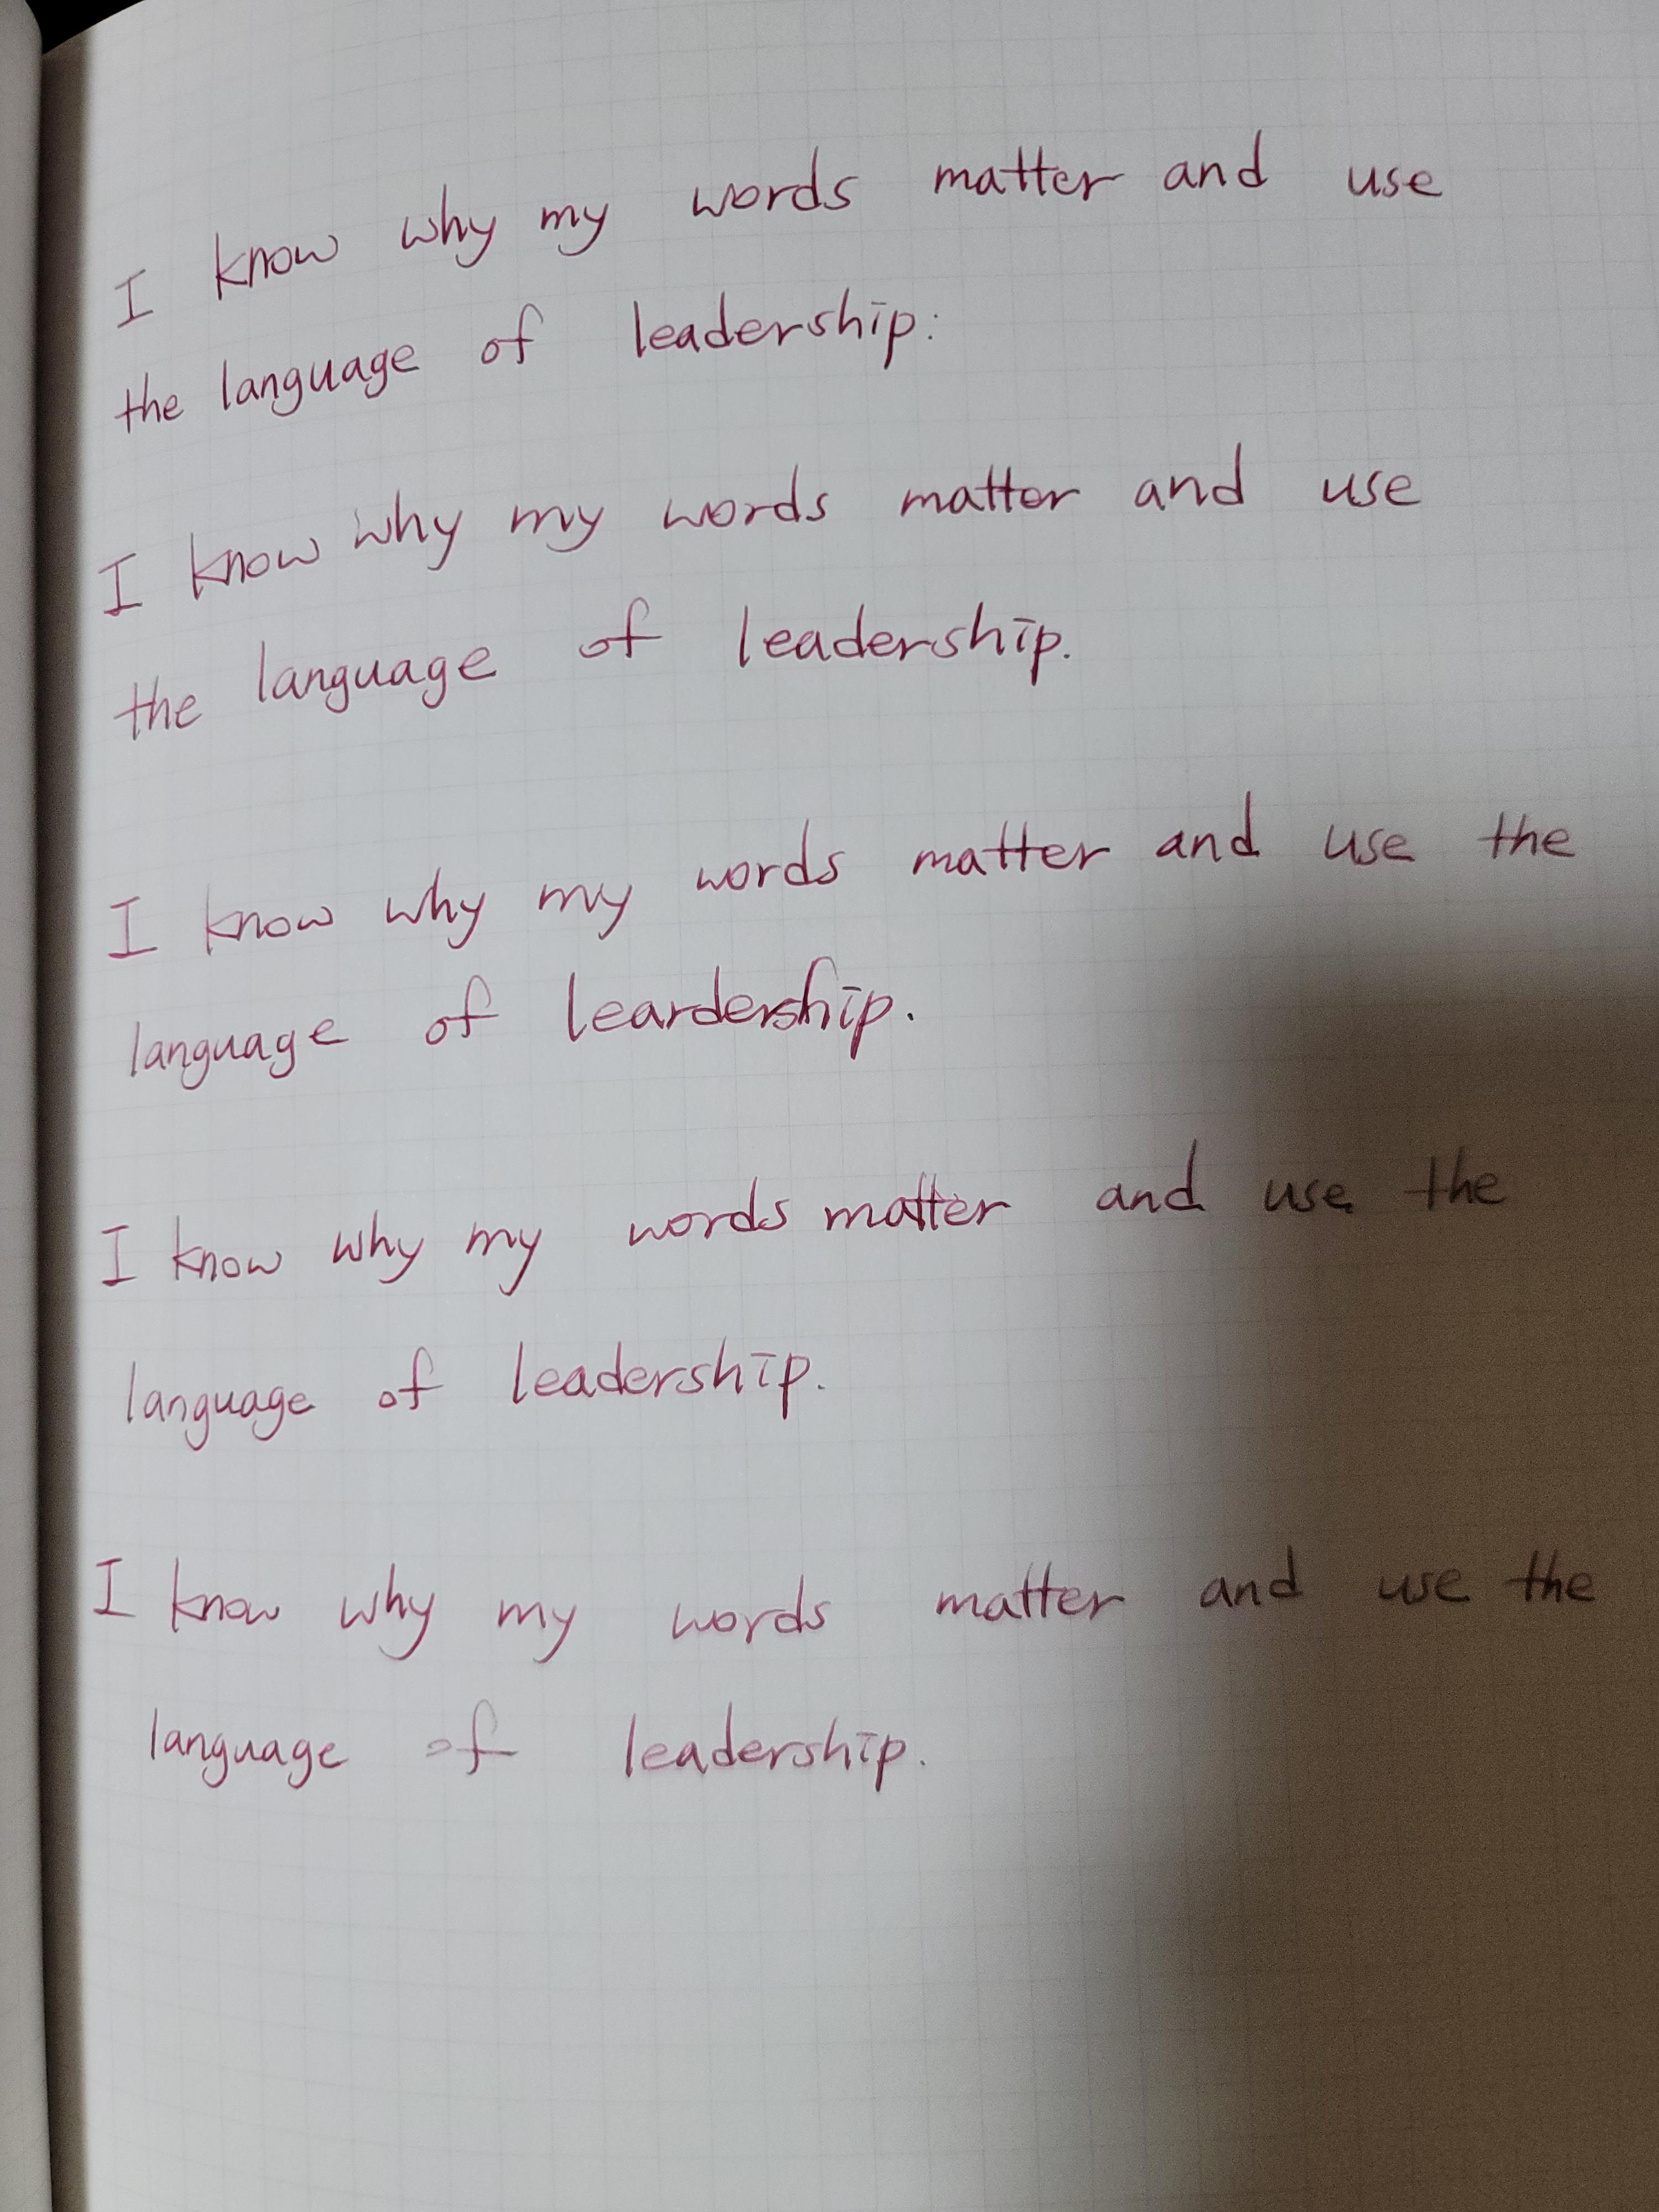 I know why my words matter and use
the language of leadership.
I know why my words matter and use
the language of leadership.
I know why my words matter and use the
language of leardership.
I know why my words matter and use the
language of leadership.
I know why my words matter and use the
language of leadership.